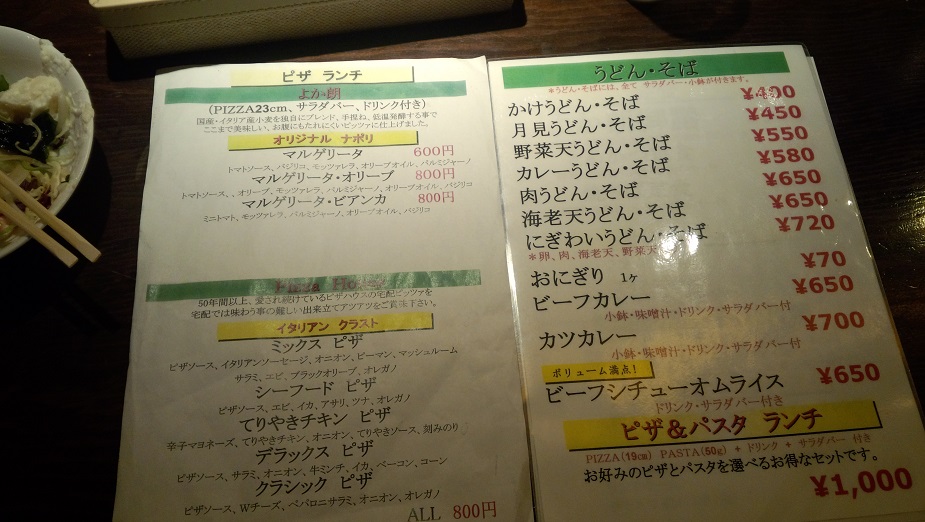 ピザ ランチ
よか朗
(PIZZA23cm、サラダバー、ドリンク付き)
国産・イタリア産小麦を独自にブレンド、手捏ね、低温発酵する事で
ここまで美味しい、お腹にもたれにくいピッツァに仕上げました。
オリジナル ナポリ
マルゲリータ 600円
トマトソース、バジリコ、モッツァレラ、オリーブオイル、パルミジャーノ
マルゲリータ・オリーブ 800円
トマトソース、、オリーブ、モッツァレラ、パルミジャーノ、オリーブオイル、バジリコ
マルゲリータ・ビアンカ 800円
ミニトマト、モッツァレラ、パルミジャーノ、オリーブオイル、バジリコ
Pizza
50年間以上、愛され続けているピザハウスの宅配ピッツァを
宅配では味わう事の難しい出来立てアツアツをご賞味下さい。
イタリアン クラスト
ミックス ピザ
ピザソース、イタリアンソーセージ、オニオン、ピーマン、マッシュルーム
サラミ、エビ、ブラックオリーブ、オレガノ
シーフード ピザ
ピザソース、エビ、イカ、アサリ、ツナ、オレガノ
てりやきチキン ピザ
辛子マヨネーズ、てりやきチキン、オニオン、てりやきソース、刻みのり
デラックス ピザ
ピザソース、サラミ、オニオン、牛ミンチ、イカ、ベーコン、コーン
クラシック ピザ
ピザソース、Wチーズ、ペパロニサラミ、オニオン、オレガノ
ALL 800円
うどん・そば
*うどん・そばには、全て サラダバー・小鉢が付きます。
かけうどん・そば ¥400
月見うどん・そば ¥450
野菜天うどん・そば ¥550
カレーうどん・そば ¥580
肉うどん・そば ¥650
海老天うどん・そば ¥650
にぎわいうどん・そば ¥720
*卵、肉、海老天、野菜天
おにぎり 1ヶ ¥70
ビーフカレー ¥650
小鉢・味噌汁・ドリンク・サラダバー付
カツカレー ¥700
小鉢・味噌汁・ドリンク・サラダバー付
ボリューム満点!
ビーフシチューオムライス ¥650
ドリンク・サラダバー付き
ピザ&パスタ ランチ
PIZZA(19cm) PASTA(50g) + ドリンク + サラダバー 付き
お好みのピザとパスタを選べるお得なセットです。
¥1,000